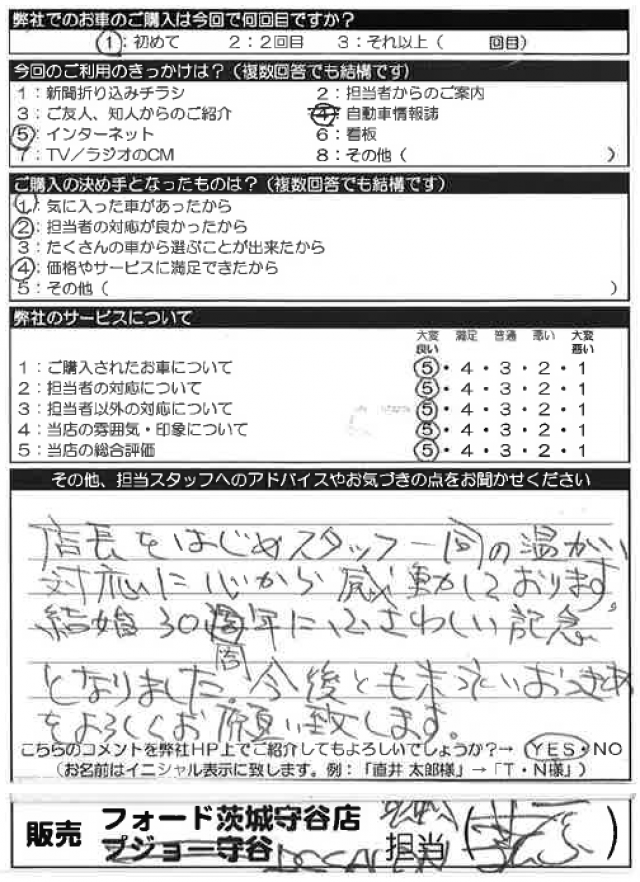 弊社でのお車のご購入は今回で何回目ですか？
1：初めて 2：2回目 3：それ以上（ 回目）
今回のご利用のきっかけは？（複数回答でも結構です）
1：新聞折り込みチラシ 2：担当者からのご案内
3：ご友人、知人からのご紹介 4：自動車情報誌
5：インターネット 6：看板
7：TV／ラジオのCM 8：その他（ ）
ご購入の決め手となったものは？（複数回答でも結構です）
1：気に入った車があったから
2：担当者の対応が良かったから
3：たくさんの車から選ぶことが出来たから
4：価格やサービスに満足できたから
5：その他（ ）
弊社のサービスについて
大変良い 満足 普通 悪い 大変悪い
1：ご購入されたお車について 5・4・3・2・1
2：担当者の対応について 5・4・3・2・1
3：担当者以外の対応について 5・4・3・2・1
4：当店の雰囲気・印象について 5・4・3・2・1
5：当店の総合評価 5・4・3・2・1
その他、担当スタッフへのアドバイスやお気づきの点をお聞かせください
店長をはじめスタッフ一同の温かい
対応に心から感動しております。
結婚30周年にふさわしい記念
となりました。今後とも末永いおつきあい
をよろしくお願い致します。
こちらのコメントを弊社HP上でご紹介してもよろしいでしょうか？→ YES・NO
（お名前はイニシャル表示に致します。例：「直井 太郎様」→「T・N様」）
販売 フォード茨城守谷店
プジョー守谷 担当（ ）